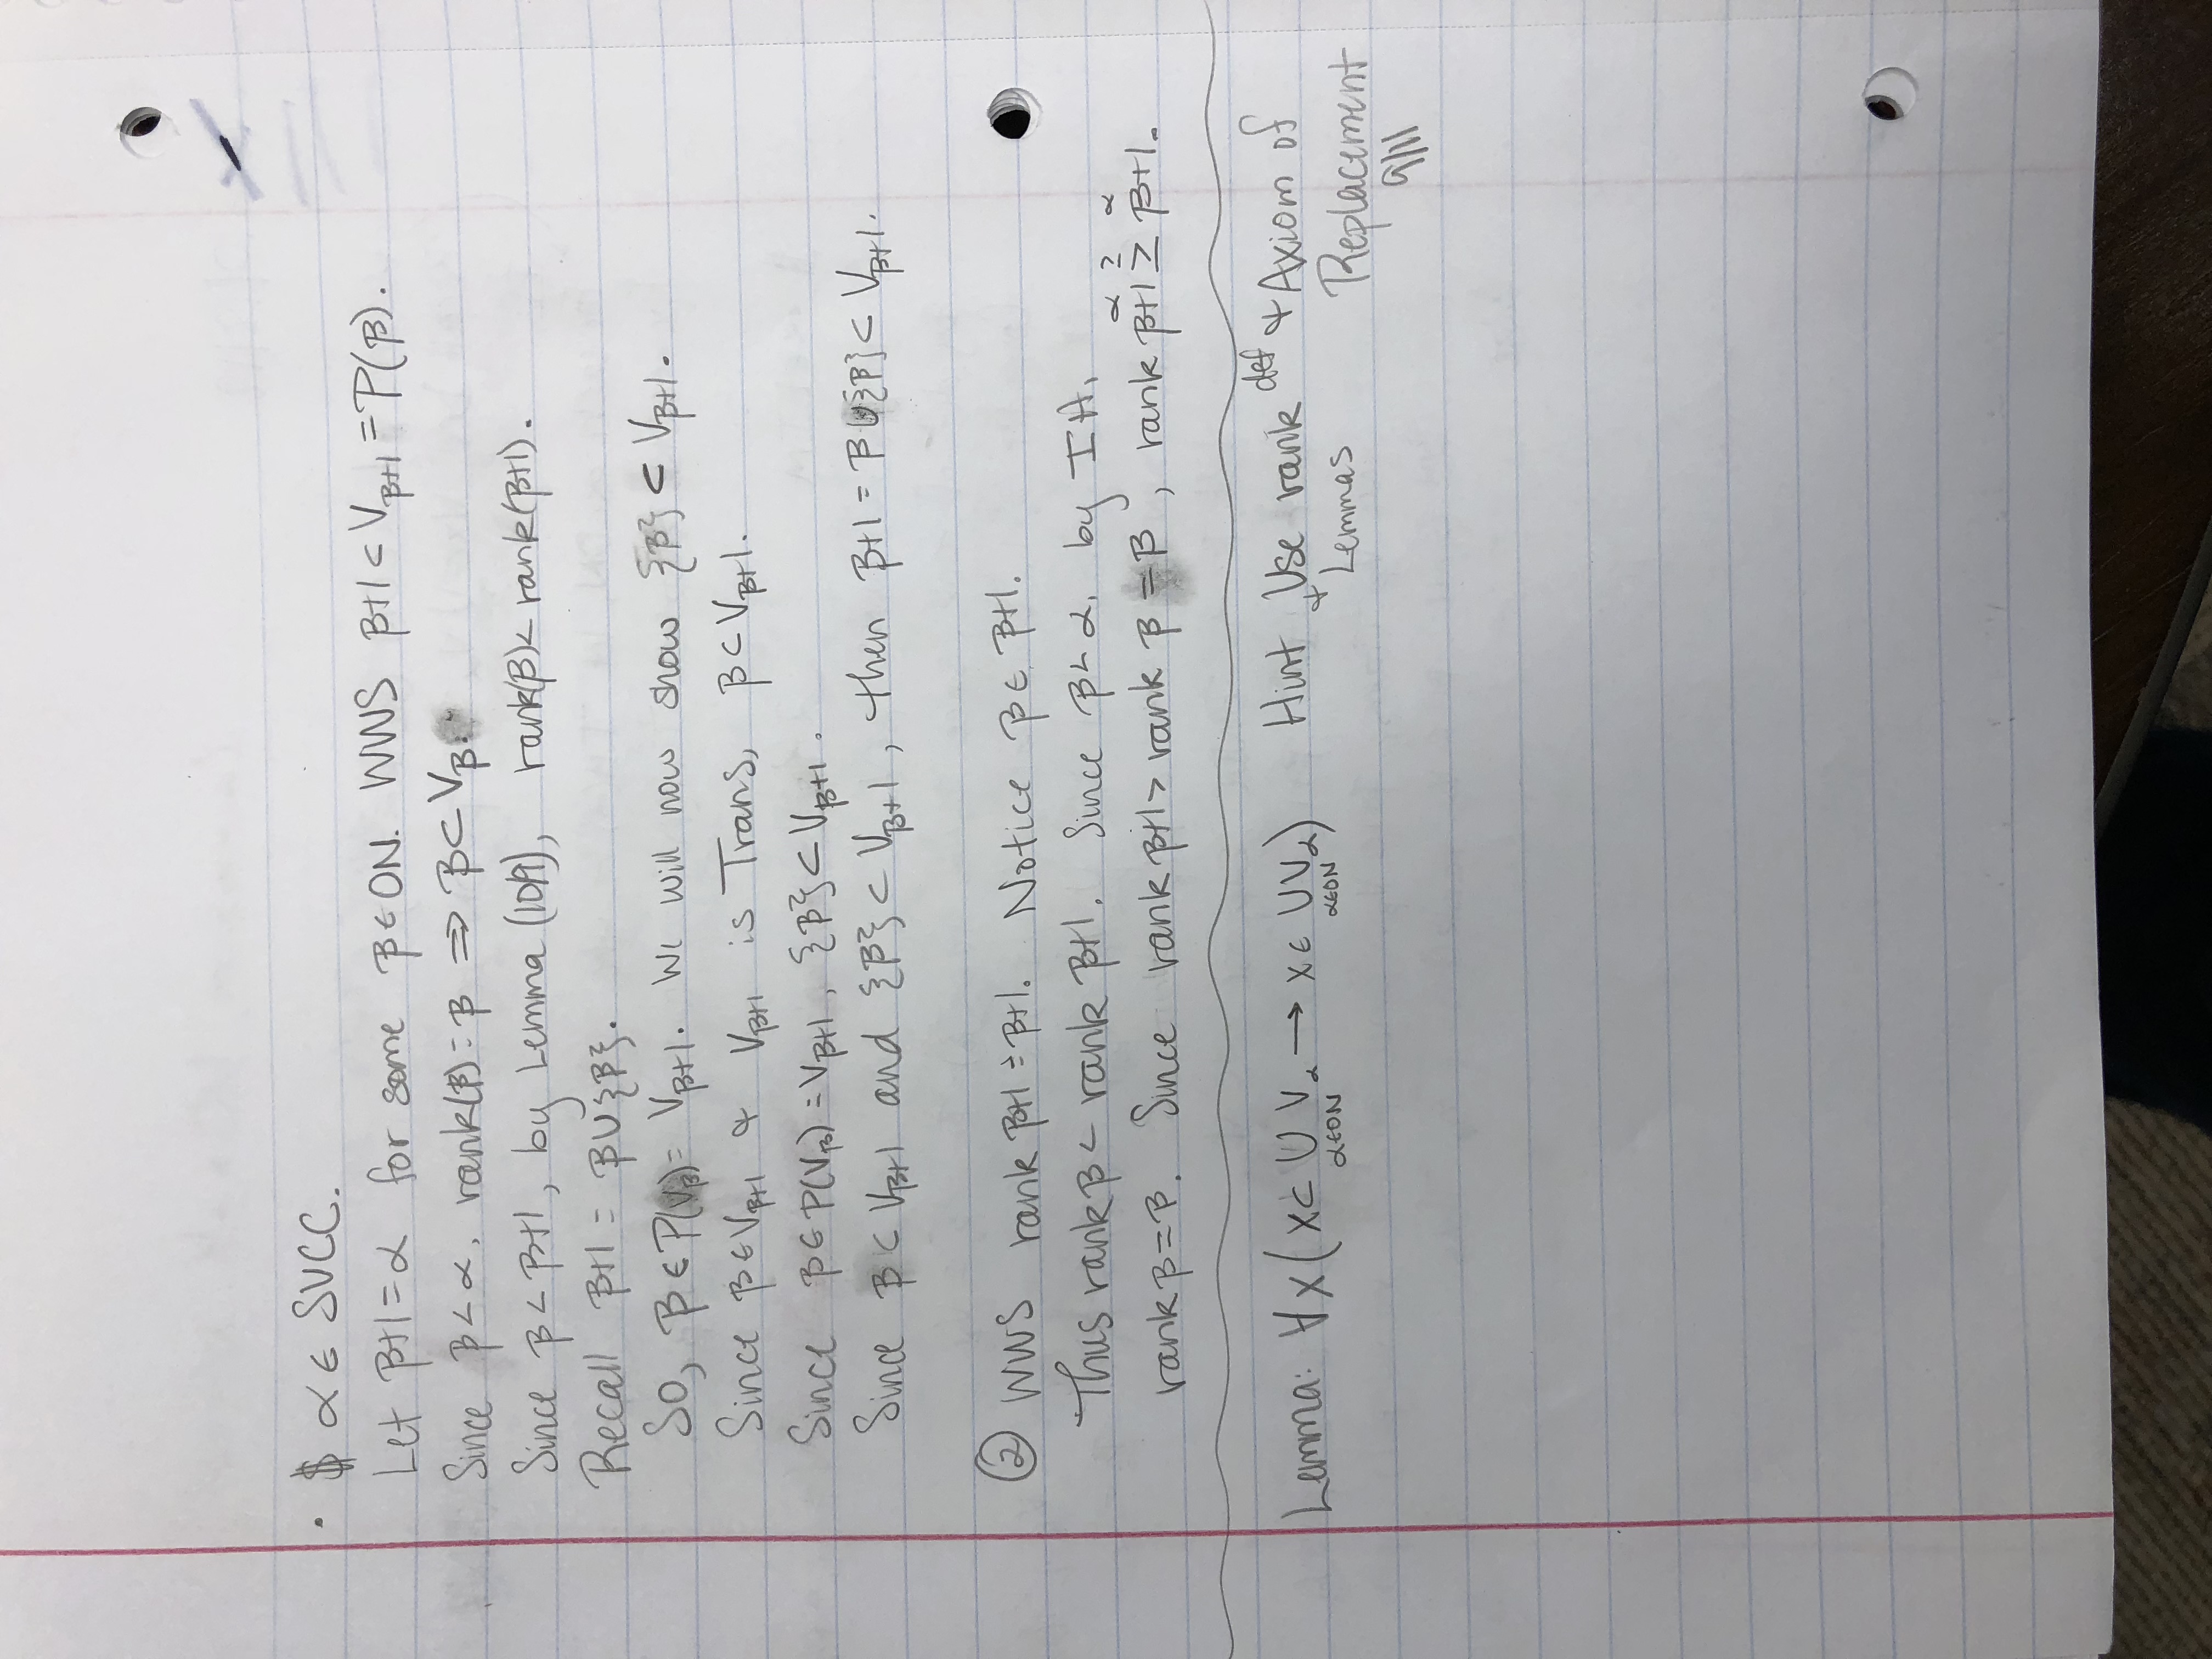 · $ α ∈ SUCC.
Let β+1 = α for some β ∈ ON. WWS β+1 ⊂ V_{β+1} = P(β).
Since β < α, rank(β) = β ⇒ β ⊂ V_β.
Since β < β+1, by Lemma (10/9), rank(β) < rank(β+1).
Recall β+1 = β ∪ {β}.
So, β ∈ P(V_β) = V_{β+1}. We will now show {β} ⊂ V_{β+1}.
Since β ∈ V_{β+1} & V_{β+1} is Trans, β ⊂ V_{β+1}.
Since β ∈ P(V_β) = V_{β+1}, {β} ⊂ V_{β+1}.
Since β ⊂ V_{β+1} and {β} ⊂ V_{β+1}, then β+1 = β ∪ {β} ⊂ V_{β+1}.
② WWS rank β+1 ≥ β+1. Notice β ∈ β+1.
Thus rank β < rank β+1. Since β < α, by IH,
α ? α
rank β = β. Since rank β+1 > rank β = β, rank β+1 ≥ β+1.
Lemma: ∀x (x ⊂ ∪_{α∈ON} V_α → x ∈ ∪_{α∈ON} V_α) Hint Use rank def & Axiom of
& Lemmas Replacement
9/11